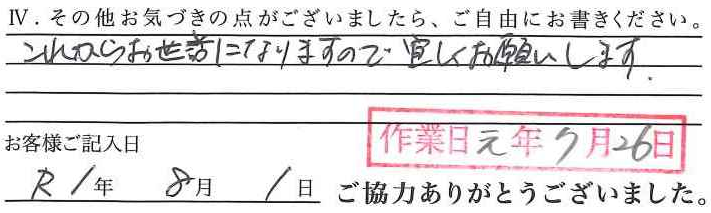 Ⅳ．その他お気づきの点がございましたら、ご自由にお書きください。
これからお世話になりますので宜しくお願いします.
作業日元年7月26日
お客様ご記入日
R1年 8月 1日 ご協力ありがとうございました。